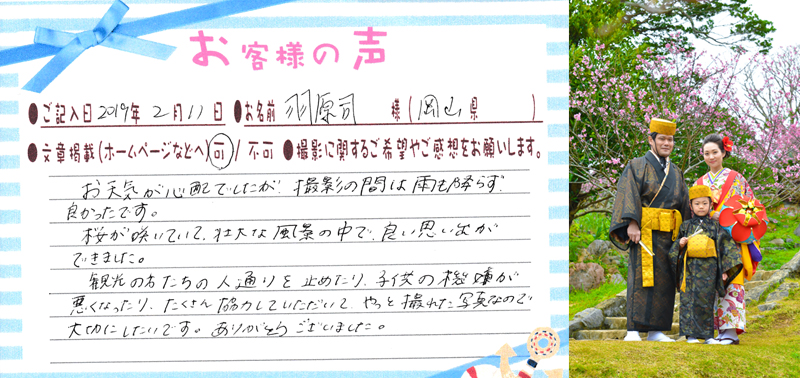 お客様の声
●ご記入日 2019年 2月11日 ●お名前 羽原司 様(岡山県 )
●文章掲載(ホームページなどへ)可/不可 ●撮影に関するご希望やご感想をお願いします。
お天気が心配でしたが、撮影の間は雨も降らず、
良かったです。
桜が咲いていて、壮大な風景の中で、良い思い出が
できました。
観光の方たちの人通りを止めたり、子供の機嫌が
悪くなったり、たくさん協力していただいて、やっと撮れた写真なので
大切にしたいです。ありがとうございました。